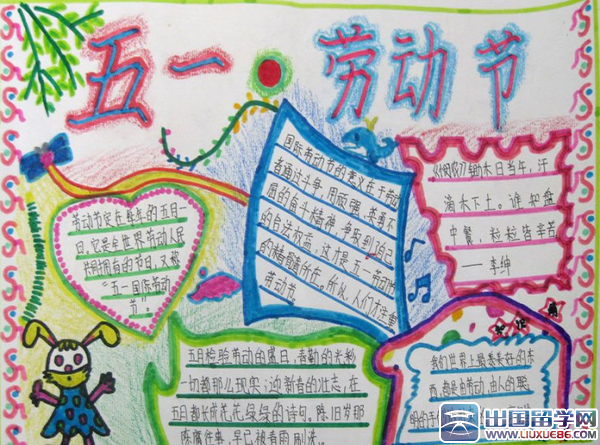 五一·劳动节
劳动节定在每年的五月一
日，它是全世界劳动人民
共同拥有的节日，又称
“五一国际劳动
节”。
国际劳动节的意义在于劳动
者通过斗争，用顽强、英勇不
屈的奋斗精神，争取到了自己
的合法权益，这才是五一劳动节
的精髓所在。所以，人们才注重
劳动节。
锄禾日当午，汗
滴禾下土。谁知盘
中餐，粒粒皆辛苦
——李绅
五月检验劳动的盛日，春勤的光彩
一切都那么现实；迎新春的壮志，在
五月都长成花花绿绿的诗句。陈旧岁那
早已被春雨刷洗。
我们世界上最美好的东
西，都是由劳动、由人的聪
出国留学网
www.liuxue86.com